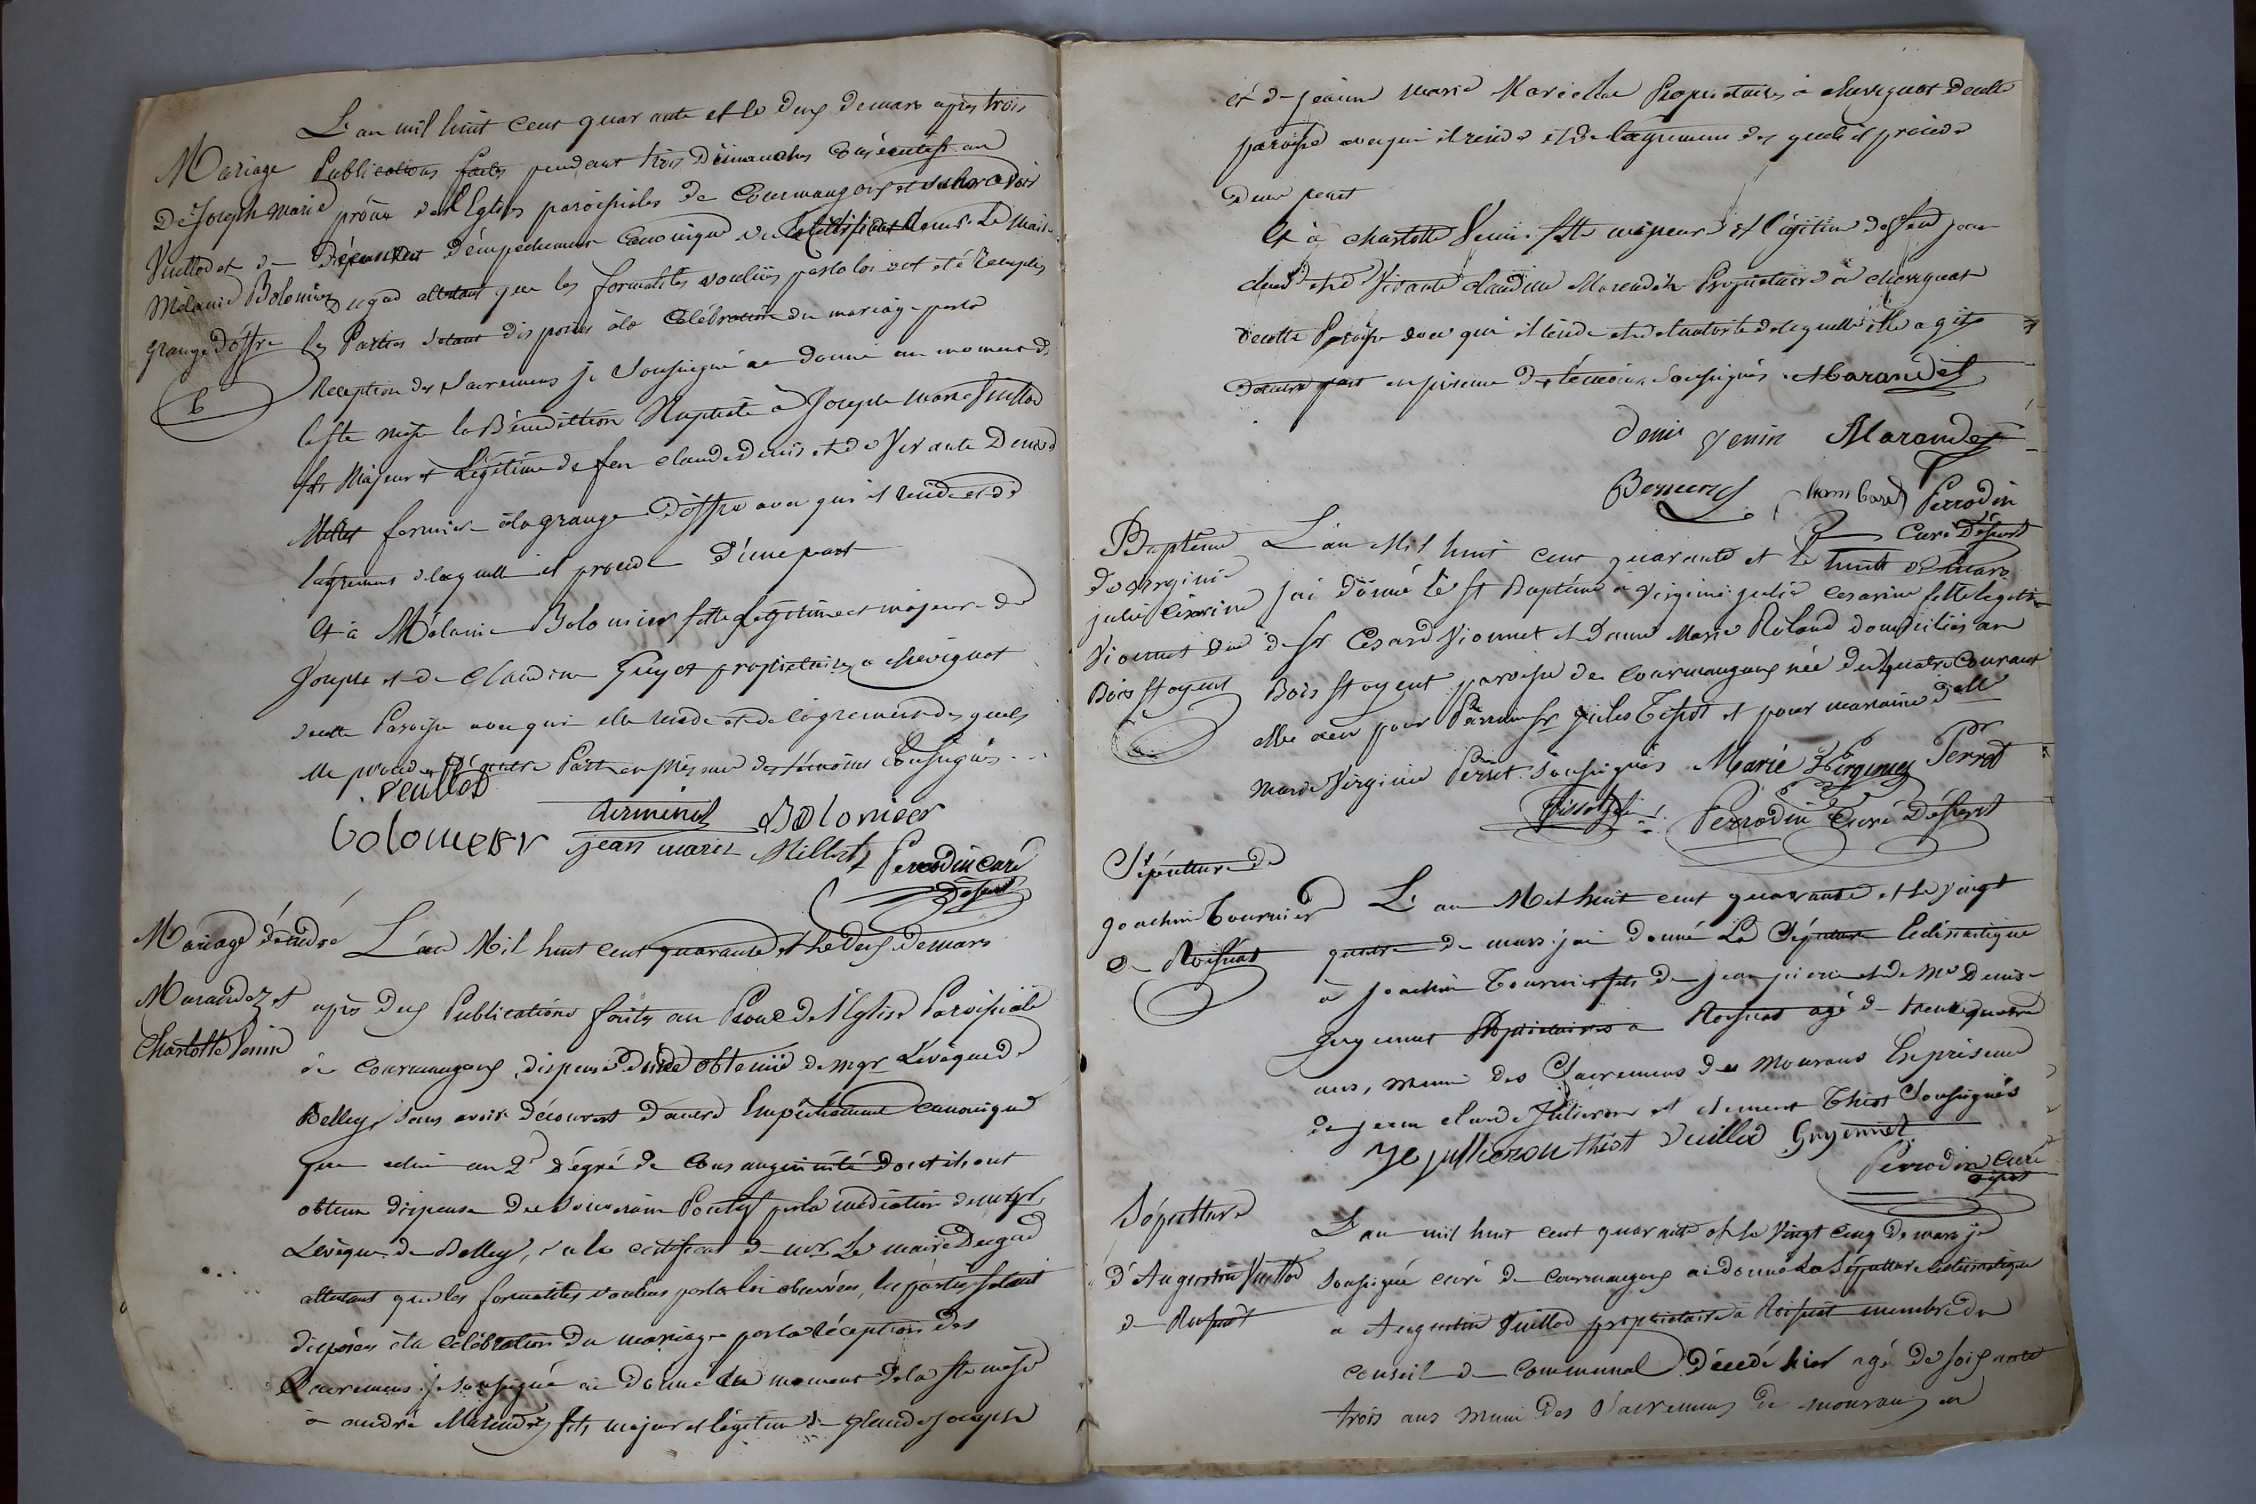 L'an mil huit cent quarante et le deux de mars après trois
Mariage
De Joseph Marie
Vuillod et de
Mélanie Bolomier
grange d'offre
Publications faites pendant trois Dimanches consécutifs au
prône des Eglises paroissiales de Courmangoux et
d'empechement Canonique vu le Certificat de mr Le Maire
Dugad attestant que les formalités voulues par la loi ont été Remplies
les Parties s'étant disposées à la Célébration du mariage par la
Réception des Sacremens je Soussigné ai donné au moment de
la Ste messe la Bénédiction Nuptiale à Joseph Marie Vuillod
fils Majeur et Légitime de feu claude denis et de Vivante Denise
Millet fermière à la grange D'offre avec qui il réside et de
l'agrément de laquelle il procède D'une part
Et à Mélanie Bolomier fille légitime et majeure de
Joseph et de Claudine Guyot propriétaires a chevignat
de cette Paroisse avec qui elle réside et de l'agrément des quels
elle procède D'autre Part en présence des témoins Soussignés
Veuillod
bolomier
Bolomier
jean marie Millet
Perrodin curé
Désert
Mariage d'andré
Marandez et
Charlotte Venin
L'an Mil huit cent quarante et le deux de mars
après deux Publications faites au Prone de l'Eglise Paroissiale
de Courmangoux, dispense d'une obtenue de mgr L'évèque de
Belley, sans avoir découvert d'autre Empêchement canonique
que celui au 2d dégré de Consanguinité dont ils ont
obtenu dispense du Souverain Pontif par la médiation de mgr
Levèque de Belley, vu le certificat de mr Le maire Dugad
attestant que les formalités voulues par la loi observées, les parties s'étant
disposées à la célébration du mariage par la réception des
Sacremens je soussigné ai donné au moment de la Ste messe
à andré Marandez fils majeur et légitime de claude joseph
et de jeanne marie Propriétaires à chevignat de cette
paroisse avec qui il réside et de l'agrément des quels il procède
d'une part
Et à charlotte Venin fille majeure et légitime de feu jean
claude et de Vivante claudine Marandez Propriétaire à chevignat
de cette Paroisse avec qui elle réside et de l'autorité de laquelle elle agit
d'autre part en présence des témoins Soussignés Marandez
denis Venin Marandez
chambard Perrodin
Curé Désert
Baptème
de virginie
julie césarine
Vionnet du
Bois St oyent
L'an Mil huit cent quarante et le huit de mars
j'ai donné le St Baptème à virginie julie césarine fille légitime
de sr César Vionnet et dame Marie Roland domiciliés au
Bois St oyent paroisse de Courmangoux née du quatre Courant
elle a eu pour Parrain sr jules Tissot et pour marraine dlle
marie Virginie Perret soussignés Marie Virginie Perret
Tissot
Perrodin Curé Désert
Sépulture de
joachim Tournier
de Roissiat
L'an Mil huit cent quarante et le vingt
quatre de mars j'ai donné La Sépulture Ecclésiastique
à joachim Tournier fils de jean pierre et de me Denise
Guyennet Propriétaires a Roissiat agé de trente quatre
ans, muni des Sacremens des Mourans En présence
de jean claude Jullieron et clement Thiot Soussignés
jc jullieron thiot Vuillod Guyennet
Perrodin curé
Désert
Sépulture
d'Augustin Vuillod
de Roissiat
L'an mil huit cent quarante et le vingt cinq de mars je
soussigné curé de Courmangoux ai donné La Sépulture Ecclésiastique
a Augustin Vuillod propriétaire à Roissiat membre du
conseil de communal Décédé hier agé de soixante
trois ans muni des Sacremens de mourans en